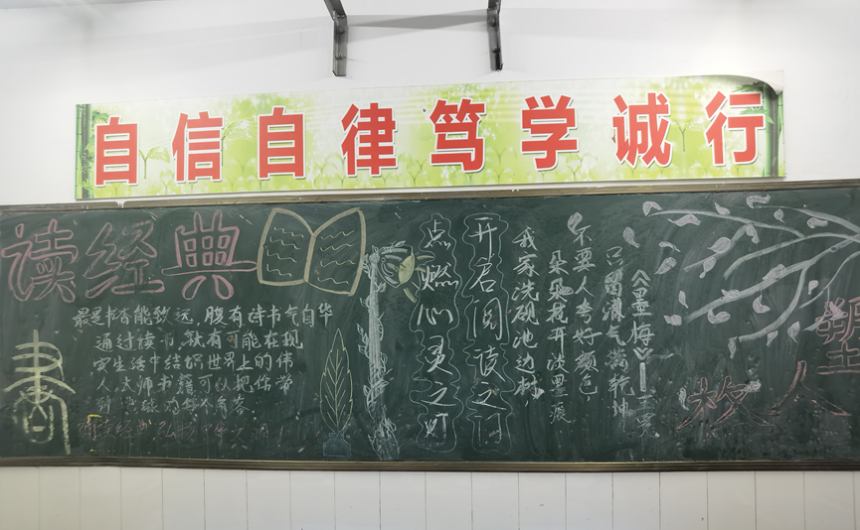 自信自律笃学诚行
读经典
最是书香能致远，腹有诗书气自华
通过读书，就有可能在现
实生活中结识世界上的伟
人大师书籍可以把你带
书
开启阅读之门
点燃心灵之灯
《墨梅》
我家洗砚池边树
朵朵花开淡墨痕
不要人夸好颜色
只留清气满乾坤
圣人